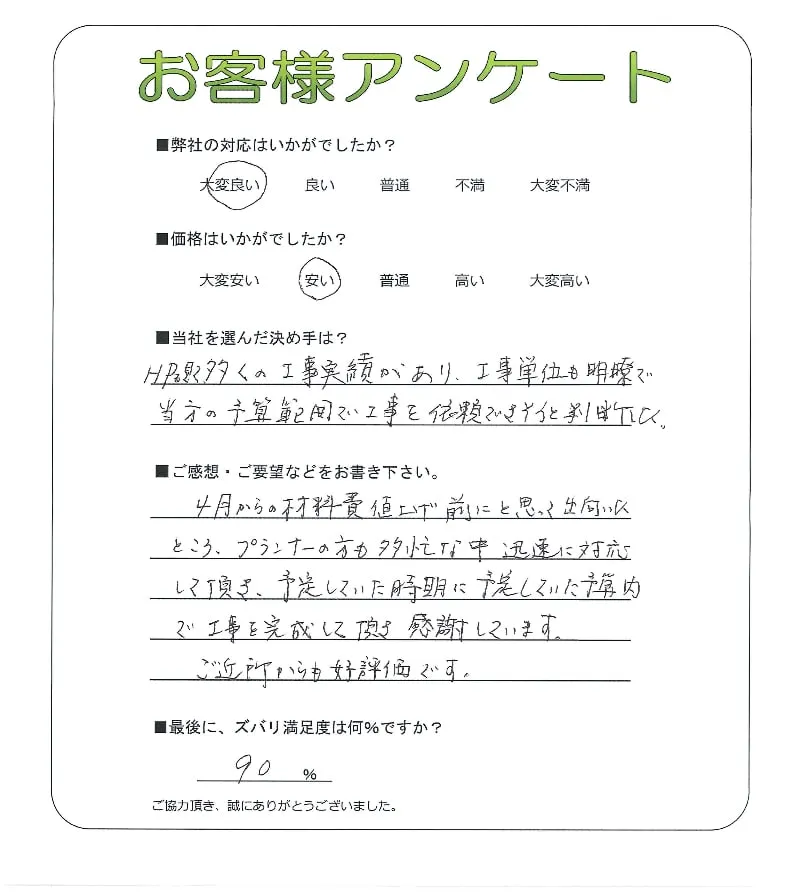 お客様アンケート
■弊社の対応はいかがでしたか？
大変良い 良い 普通 不満 大変不満
■価格はいかがでしたか？
大変安い 安い 普通 高い 大変高い
■当社を選んだ決め手は？
多くの工事実績があり、工事単位も明瞭で
当方の予算範囲で工事を依頼できそうと判断した。
■ご感想・ご要望などをお書き下さい。
4月からの材料費値上げ前にと思って出向いた
ところ、プランナーの方も多忙な中迅速に対応
して頂き、予定していた時期に予定していた予算内
で工事を完成して頂き感謝しています。
ご近所からも好評価です。
■最後に、ズバリ満足度は何%ですか？
90 %
ご協力頂き、誠にありがとうございました。